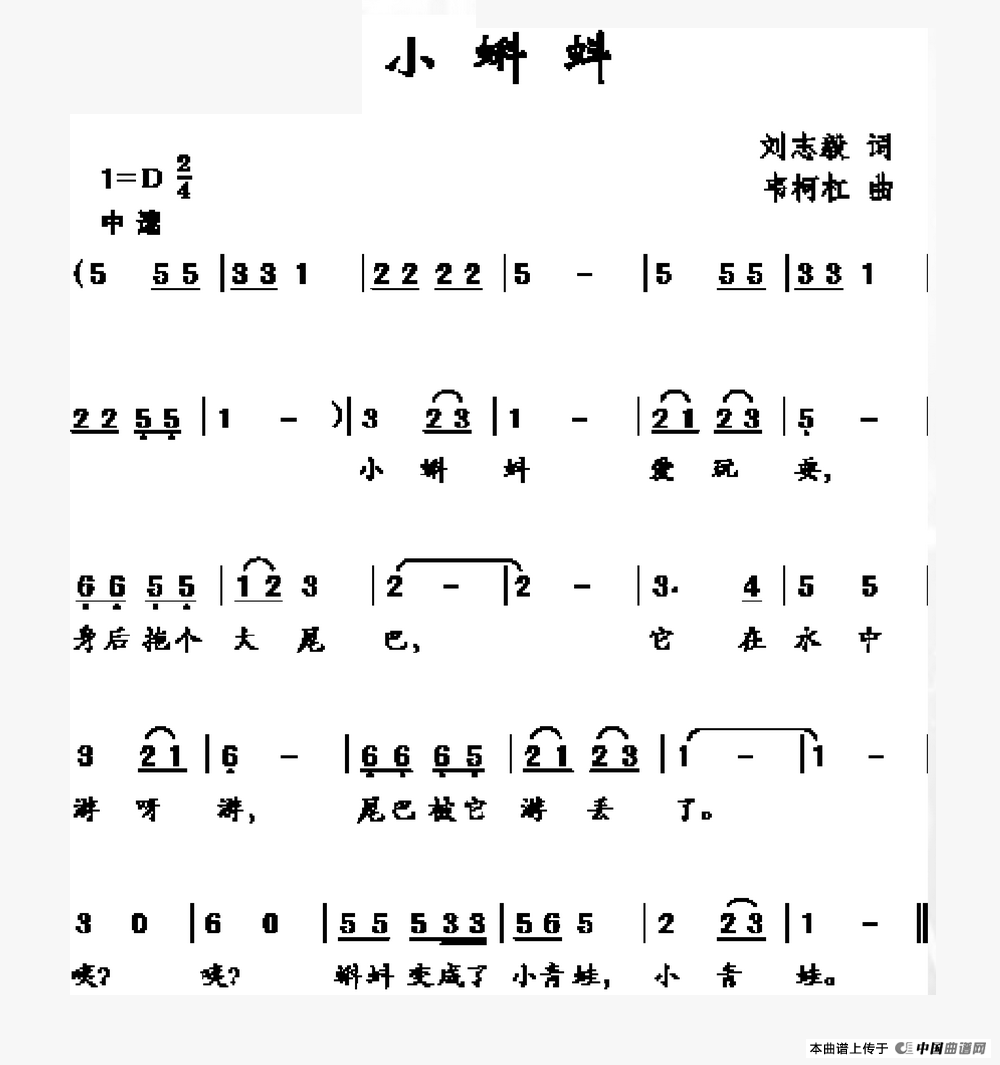 小蝌蚪
刘志毅 词
1=D 2/4
韦柯杠 曲
中速
(5 5 5 | 3 3 1 | 2 2 2 2 | 5 - | 5 5 5 | 3 3 1 |
2 2 5 5 | 1 - )| 3 2 3 | 1 - | 2 1 2 3 | 5 - |
小 蝌 蚪 爱 玩 耍,
6 6 5 5 | 1 2 3 | 2 - | 2 - | 3. 4 | 5 5 |
身后拖个 大 尾 巴, 它 在 水 中
3 2 1 | 6 - | 6 6 6 5 | 2 1 2 3 | 1 - | 1 - |
游 呀 游, 尾巴被它 游 丢 了。
3 0 | 6 0 | 5 5 5 3 3 | 5 6 5 | 2 2 3 | 1 - ‖
咦? 咦? 蝌蚪 变成了 小青蛙, 小 青 蛙。
本曲谱上传于 中国曲谱网